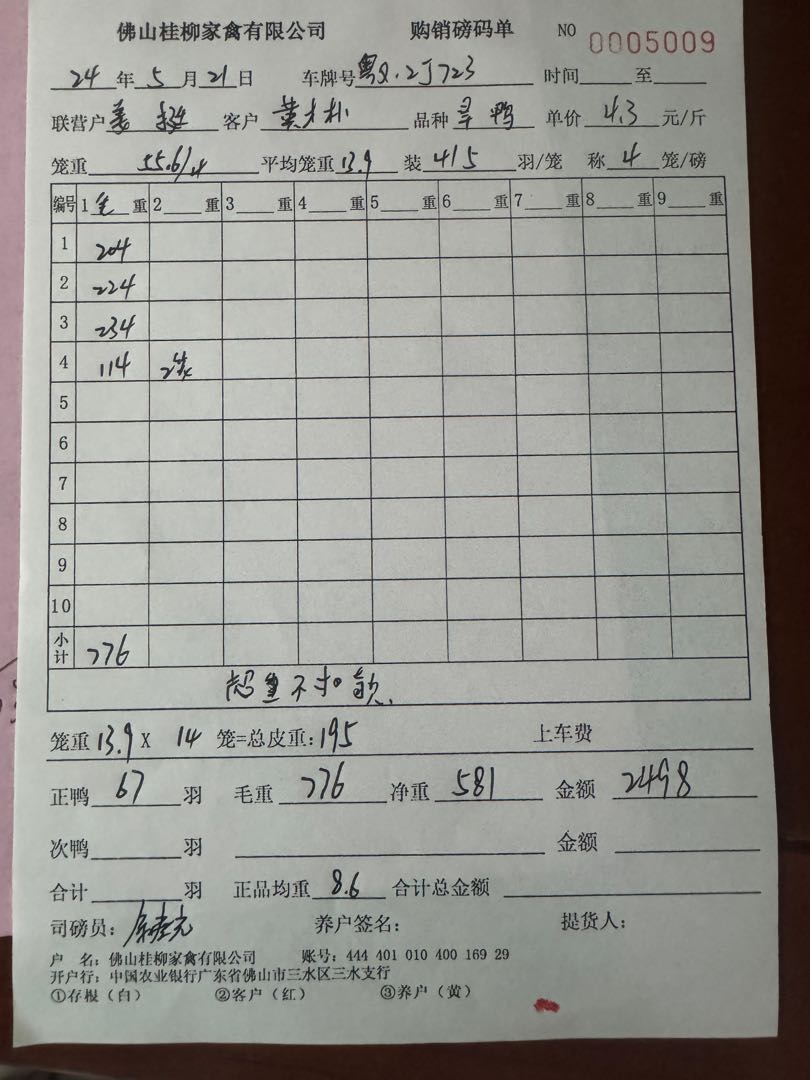 佛山桂柳家禽有限公司 购销磅码单 NO 0005009
24 年 5 月 21 日 车牌号 粤 时间 至
联营户 客户 黄 品种 鸭 单价 4.3 元/斤
笼重 55.6/4 平均笼重 13.9 装 4/5 羽/笼 称 4 笼/磅
编号 1 毛 重 2 重 3 重 4 重 5 重 6 重 7 重 8 重 9 重
1 204
2 224
3 234
4 114 2笼
5
6
7
8
9
10
小计 776
超重不扣款.
笼重 13.9 X 14 笼=总皮重: 195 上车费
正鸭 67 羽 毛重 776 净重 581 金额 2498
次鸭 羽 金额
合计 羽 正品均重 8.6 合计总金额
司磅员: 养户签名: 提货人:
户 名: 佛山桂柳家禽有限公司 账号: 444 401 010 400 169 29
开户行: 中国农业银行广东省佛山市三水区三水支行
①存根（白） ②客户（红） ③养户（黄）